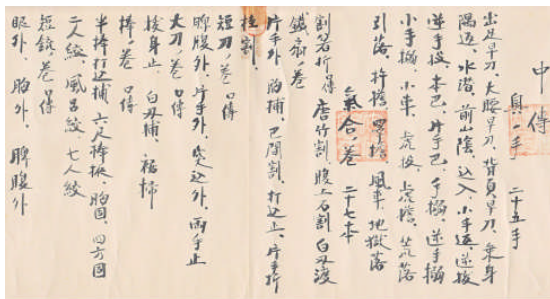 中傳
奥ノ手 二十五手
出足早刀、大腰早刀、背負早刀、乗身
隅返、水潜、前山陰、込入、小手返、逆投
逆手投、本巴、片手巴、手搦、逆手搦
小手搦、小車、虎投、虎擔、荒落
引落、杵擔、擔、風車、地獄落
氣合ノ巻 二十七本
割岩折口傳 唐竹割、腹上石割、白刃渡
鐵扇ノ巻
片手外、胸捕、巴開割、打込止、片手折
柱割、
短刀ノ巻 口傳
脾腹外、片手外、突込外、両手止
大刀ノ巻 口傳
投身止、白刃捕、裾拂
棒ノ巻 口傳
半棒打込捕、六尺棒振、胸固、四方固
二人絞、風呂絞、七人絞
短銃ノ巻口傳
眼外、胸外、脾腹外